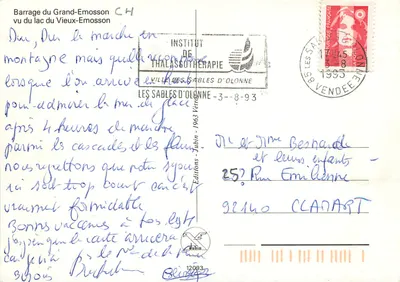 Barrage du Grand-Emosson CH
vu du lac du Vieux-Emosson
Dur, Dur la marche en
montagne mais quelle
lorsque l'on arrive en haut
pour admirer la mer de glace
après 4 heures de
parmi les cascades et les fleurs
nous regrettons que notre séjour
ici soit trop court car c'est
vraiment formidable
Bonnes vacances à tous les 4
j'espère que la carte arrivera
car j'ai pas le N° de la
Bisous
INSTITUT
DE
THALASSOTHERAPIE
VILLE DES SABLES D'OLONNE
LES SABLES D'OLONNE -3-8-93
17H45
3-8
1993
85 LES SABLES
VENDEE
Mr et Mme Bernard
et leurs enfants
25 Rue Emilienne
92140 CLAMART
12093